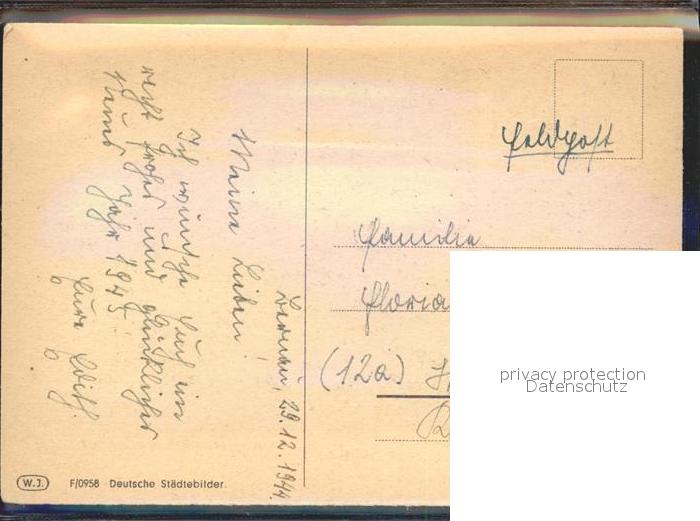 Bernau, 29.12.1944.
Meine Lieben!
Ich wünsche Euch ein
recht frohes und glückliches
Neues Jahr 1945.
Eure Edith.
Feldpost
Familie
Floria
(12a)
W.J. F/0958 Deutsche Städtebilder.
privacy protection
Datenschutz